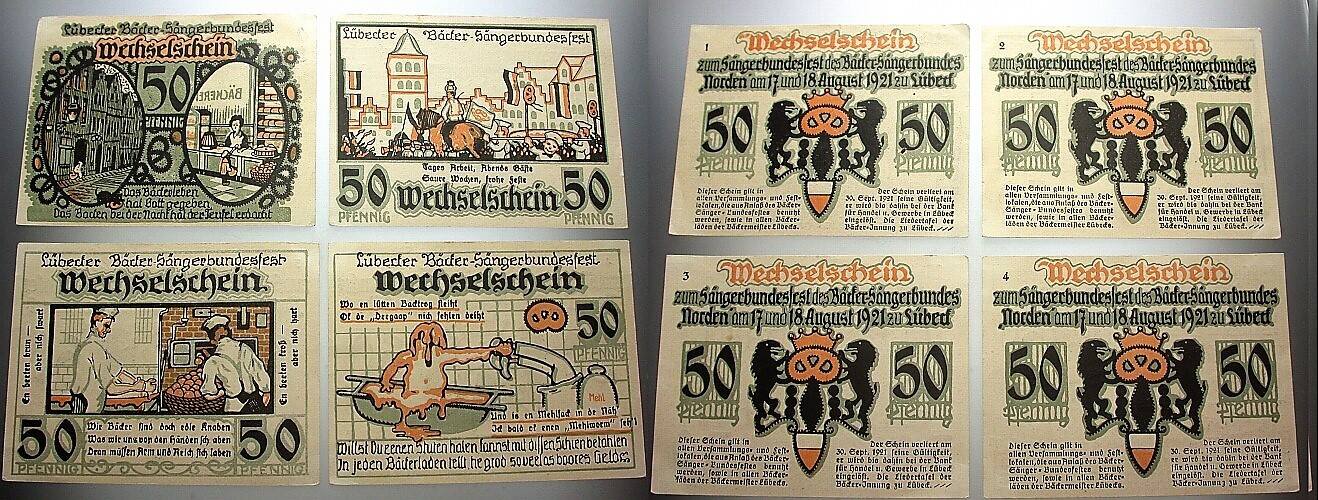 Lübecker Bäcker-Sängerbundesfest
Wechselschein
50
PFENNIG
BÄCKEREI
Das Bäckerleben
hat Gott gegeben
Das Backen bei der Nacht hat der Teufel erdacht
Lübecker Bäcker-Sängerbundesfest
Tages Arbeit, Abends Gäste
Saure Wochen, frohe Feste
50 Wechselschein 50
PFENNIG PFENNIG
Lübecker Bäcker-Sängerbundesfest
Wechselschein.
En beeten brun —
aber nich swart
En beeten kroß —
aber nich hart
50 50
PFENNIG PFENNIG
Wir Bäcker sind doch edle Knaben
Was wir uns von den Händen schaben
Dran müssen Arm und Reich sich laben
Lübecker Bäcker-Sängerbundesfest
Wechselschein.
Wo en lütten Backtrog steiht
Ok de „Deegaap" nich fehlen deiht
50
PFENNIG
Mehl
Und is en Mehlsack in de Näh'
Ick bald ok enen „Mehlworm" seh'!
Willst Du eenen Stuten halen kannst mit düssen Schien betahlen
In jeden Bäckerladen tellt he grad soveel as boores Geld
1
Wechselschein
zum Sängerbundesfest des Bäcker-Sängerbundes
Norden am 17 und 18 August 1921 zu Lübeck
50 50
Pfennig Pfennig
Dieser Schein gilt in
allen Versammlungs- und Fest-
lokalen, die aus Anlaß des Bäcker-
Sänger-Bundesfestes benutzt
werden, sowie in allen Bäcker-
läden der Bäckermeister Lübecks.
Der Schein verliert am
30. Sept. 1921 seine Gültigkeit,
er wird bis dahin bei der Bank
für Handel u. Gewerbe in Lübeck
eingelöst. Die Liedertafel der
Bäcker-Innung zu Lübeck.
2
Wechselschein
zum Sängerbundesfest des Bäcker-Sängerbundes
Norden am 17 und 18 August 1921 zu Lübeck
50 50
Pfennig Pfennig
Dieser Schein gilt in
allen Versammlungs- und Fest-
lokalen, die aus Anlaß des Bäcker-
Sänger-Bundesfestes benutzt
werden, sowie in allen Bäcker-
läden der Bäckermeister Lübecks.
Der Schein verliert am
30. Sept. 1921 seine Gültigkeit,
er wird bis dahin bei der Bank
für Handel u. Gewerbe in Lübeck
eingelöst. Die Liedertafel der
Bäcker-Innung zu Lübeck.
3
Wechselschein
zum Sängerbundesfest des Bäcker-Sängerbundes
Norden am 17 und 18 August 1921 zu Lübeck
50 50
Pfennig Pfennig
Dieser Schein gilt in
allen Versammlungs- und Fest-
lokalen, die aus Anlaß des Bäcker-
Sänger-Bundesfestes benutzt
werden, sowie in allen Bäcker-
läden der Bäckermeister Lübecks.
Der Schein verliert am
30. Sept. 1921 seine Gültigkeit,
er wird bis dahin bei der Bank
für Handel u. Gewerbe in Lübeck
eingelöst. Die Liedertafel der
Bäcker-Innung zu Lübeck.
4
Wechselschein
zum Sängerbundesfest des Bäcker-Sängerbundes
Norden am 17 und 18 August 1921 zu Lübeck
50 50
Pfennig Pfennig
Dieser Schein gilt in
allen Versammlungs- und Fest-
lokalen, die aus Anlaß des Bäcker-
Sänger-Bundesfestes benutzt
werden, sowie in allen Bäcker-
läden der Bäckermeister Lübecks.
Der Schein verliert am
30. Sept. 1921 seine Gültigkeit,
er wird bis dahin bei der Bank
für Handel u. Gewerbe in Lübeck
eingelöst. Die Liedertafel der
Bäcker-Innung zu Lübeck.